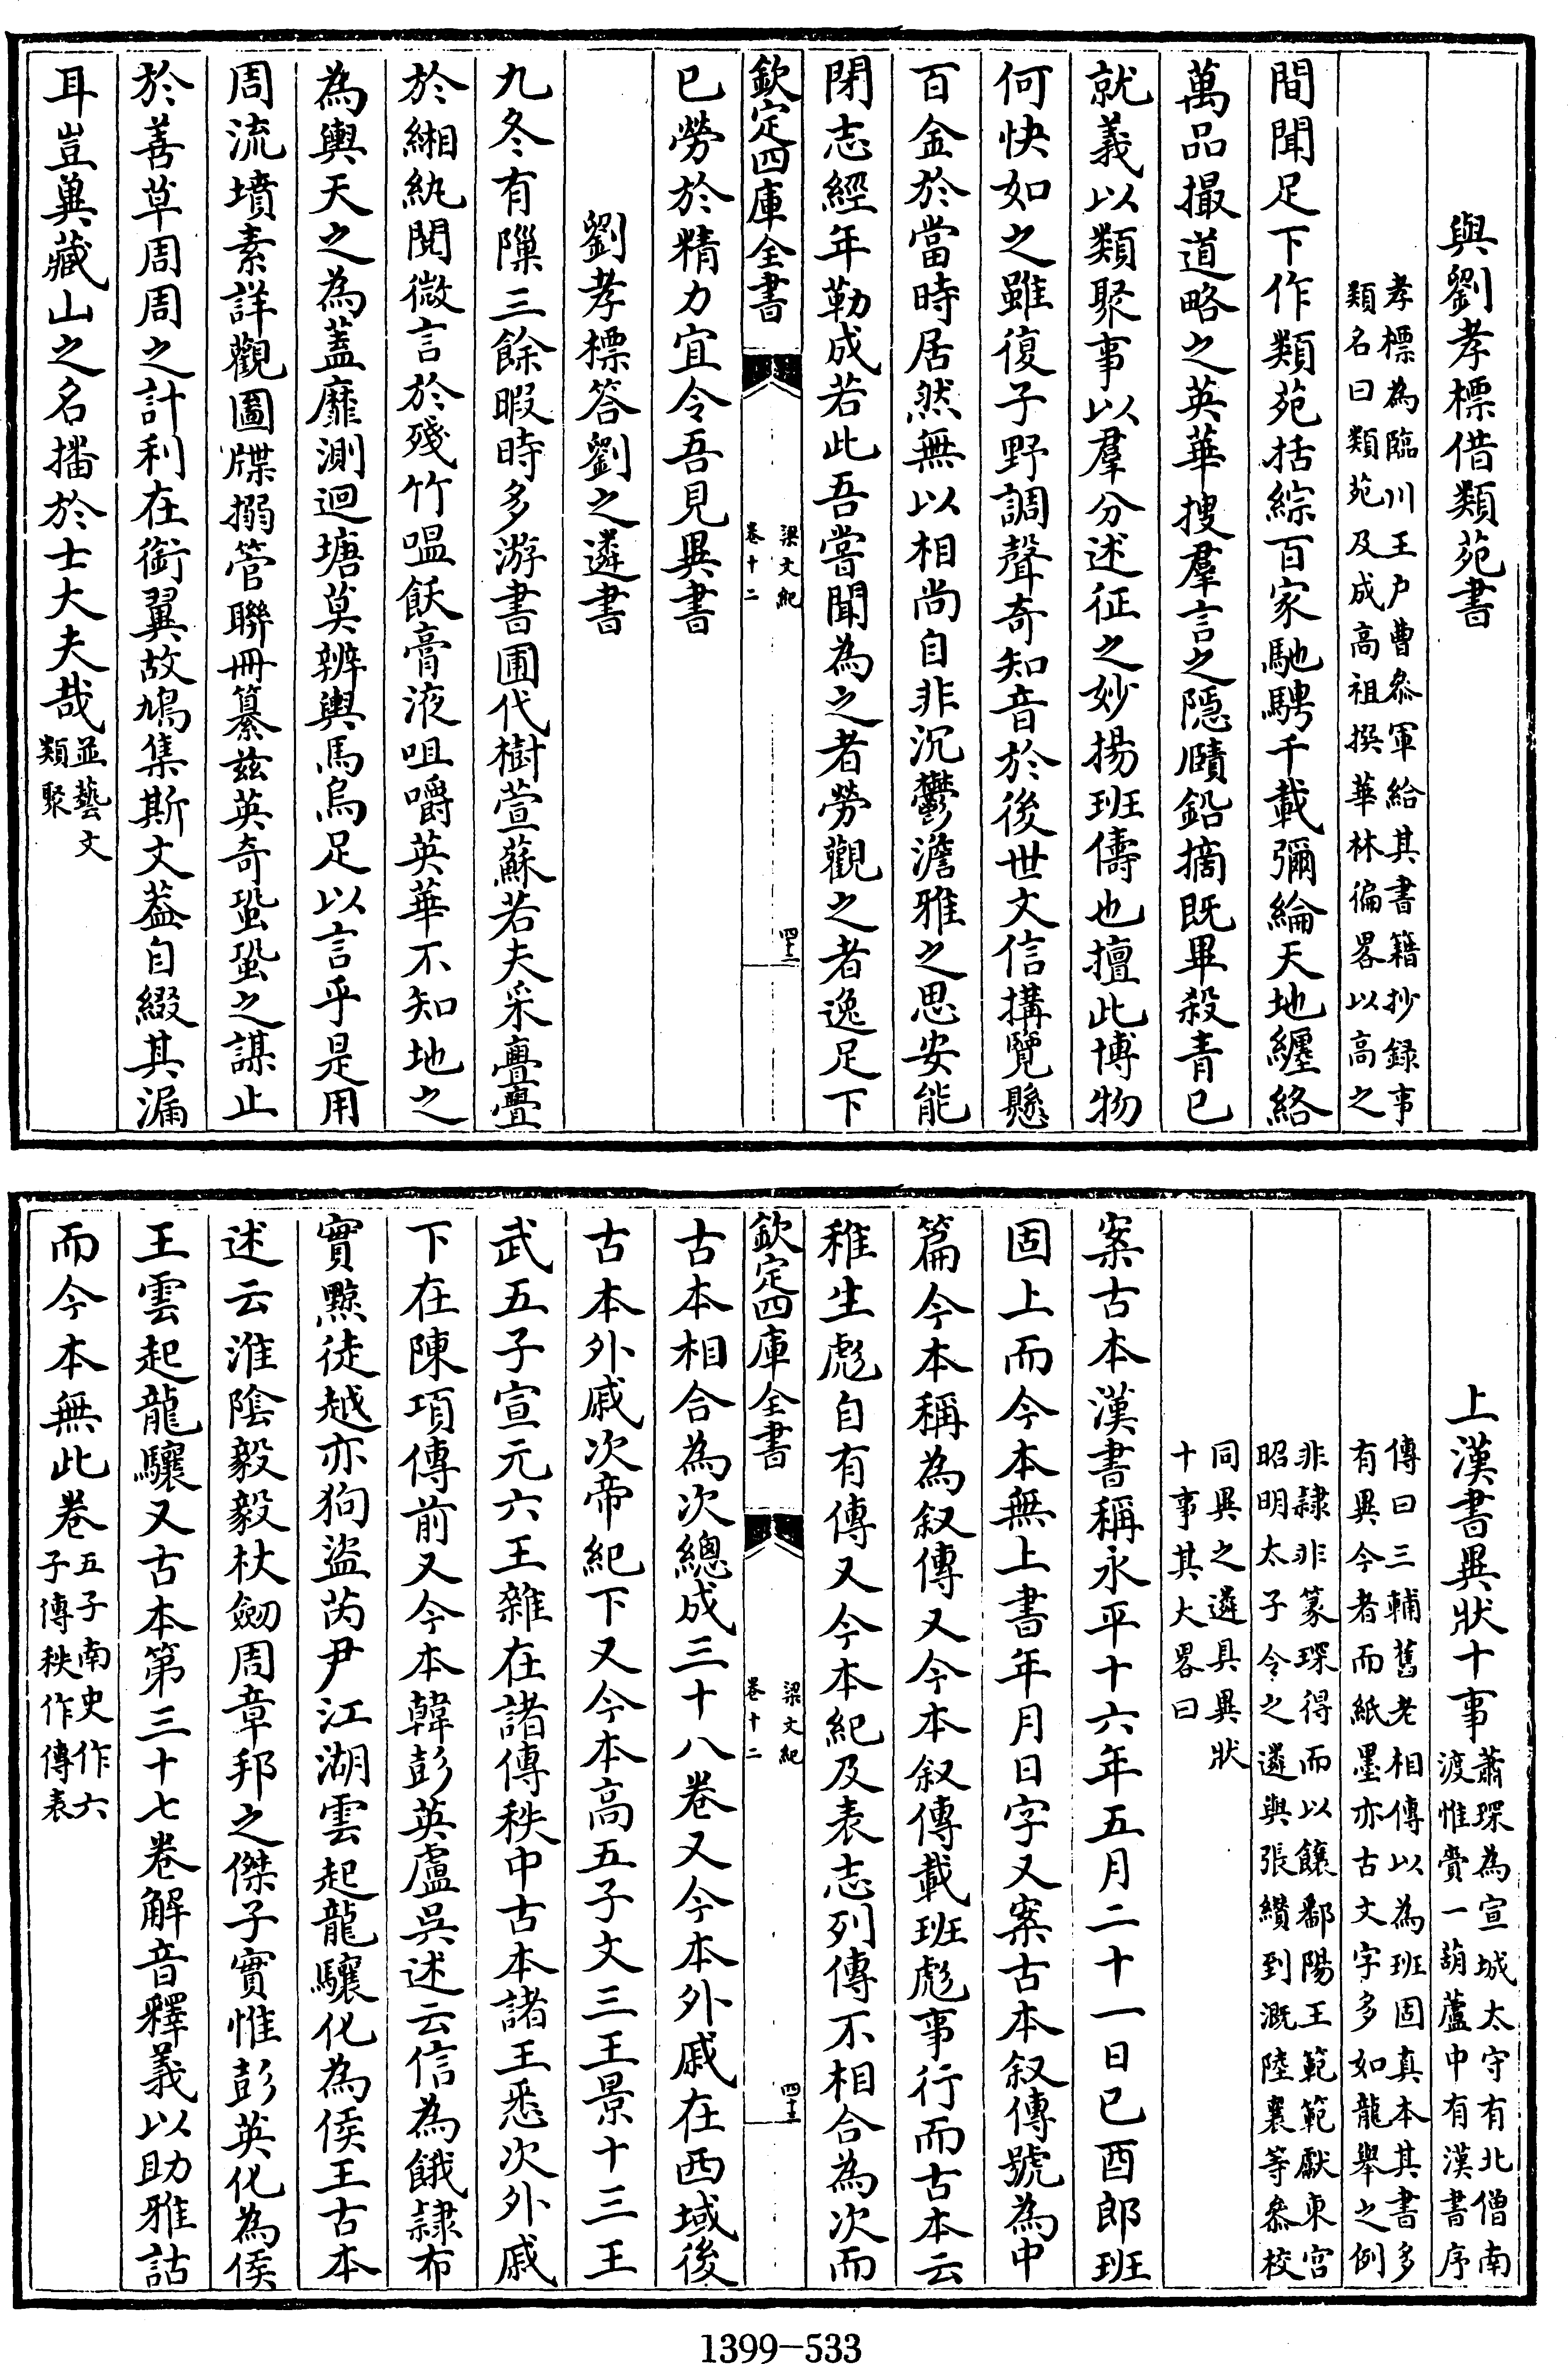 與劉孝標借類苑書
孝標為臨川王户曹叅軍給其書籍抄録事
類名曰類苑及成髙祖撰華林徧畧以髙之
間聞足下作類苑括綜百家馳騁千載彌綸天地纒絡
萬品撮道略之英華搜羣言之隱賾鉛摘既畢殺青已
就義以類聚事以羣分述征之妙揚班儔也擅此博物
何快如之雖復子野調聲寄知音於後世文信搆覽懸
百金於當時居然無以相尚自非沉鬱澹雅之思安能
閉志經年勒成若此吾嘗聞為之者勞觀之者逸足下
欽定四庫全書
梁文紀
卷十二
四十二
已勞於精力宜令吾見異書
劉孝標答劉之遴書
九冬有隟三餘暇時多游書圃代樹萱蘇若夫采亹亹
於緗紈閲微言於殘竹嗢飫膏液咀嚼英華不知地之
為輿天之為蓋靡測迴塘莫辨輿馬烏足以言乎是用
周流墳素詳觀圖牒搦管聯冊纂兹英奇蛩蛩之謀止
於善草周周之計利在銜翼故鳩集斯文葢自綴其漏
耳豈冀藏山之名播於士大夫哉並藝文
類聚
上漢書異狀十事蕭琛為宣城太守有北僧南
渡惟賫一葫蘆中有漢書序
傳曰三輔舊老相傳以為班固真本其書多
有異今者而紙墨亦古文字多如龍舉之例
非隷非篆琛得而以饟鄱陽王範範獻東宫
昭明太子令之遴與張纘到溉陸襄等叅校
同異之遴具異狀
十事其大畧曰
案古本漢書稱永平十六年五月二十一日己酉郎班
固上而今本無上書年月日字又案古本叙傳號為中
篇今本稱為叙傳又今本叙傳載班彪事行而古本云
稚生彪自有傳又今本紀及表志列傳不相合為次而
欽定四庫全書
梁文紀
卷十二
四十三
古本相合為次總成三十八卷又今本外戚在西域後
古本外戚次帝紀下又今本髙五子文三王景十三王
武五子宣元六王雜在諸傳秩中古本諸王悉次外戚
下在陳項傳前又今本韓彭英盧吳述云信為餓隷布
實黥徒越亦狗盜芮尹江湖雲起龍驤化為侯王古本
述云淮隂毅毅杖劒周章邦之傑子實惟彭英化為侯
王雲起龍驤又古本第三十七卷解音釋義以助雅詁
而今本無此卷五子南史作六
子傳秩作傳表
1399-533